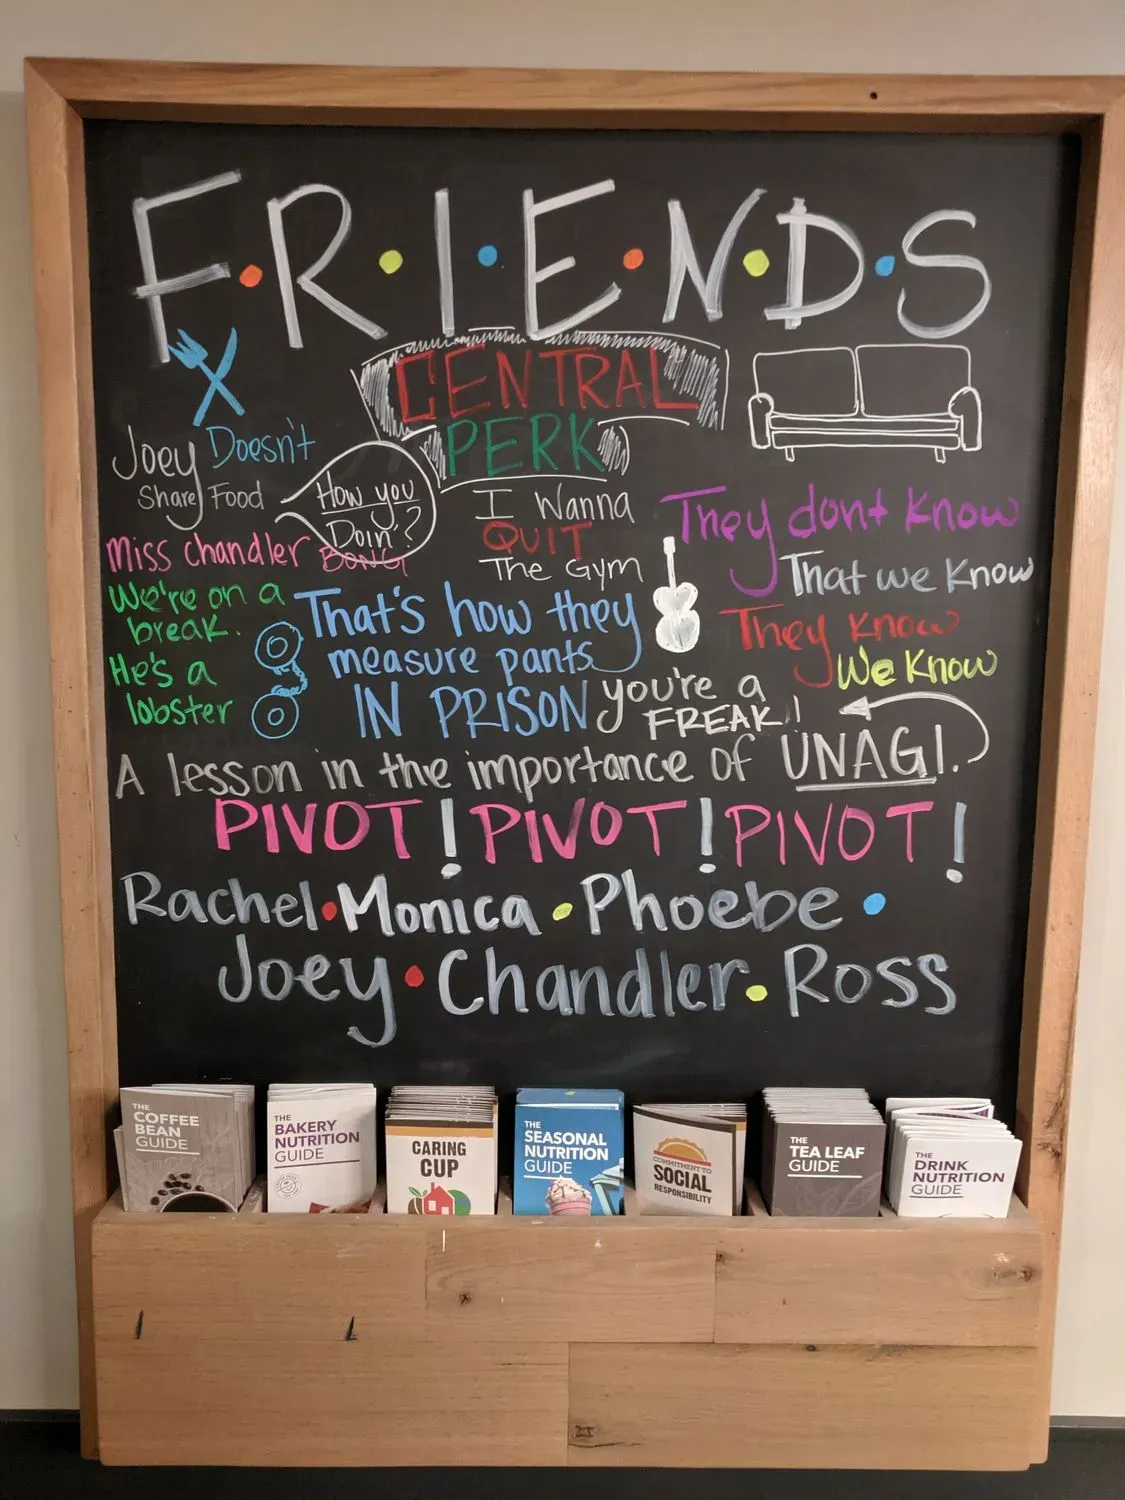 F·R·I·E·N·D·S
CENTRAL
PERK
Joey Doesn't
Share Food
How you
Doin'?
I Wanna
QUIT
The Gym
They dont know
That we know
They know
We know
Miss chandler BONG
We're on a
break.
He's a
lobster
That's how they
measure pants
IN PRISON
you're a
FREAK!
A lesson in the importance of UNAGI.
PIVOT! PIVOT! PIVOT!
Rachel · Monica · Phoebe ·
Joey · Chandler · Ross
THE
COFFEE
BEAN
GUIDE
THE
BAKERY
NUTRITION
GUIDE
CARING
CUP
THE
SEASONAL
NUTRITION
GUIDE
COMMITMENT TO
SOCIAL
RESPONSIBILITY
THE
TEA LEAF
GUIDE
THE
DRINK
NUTRITION
GUIDE